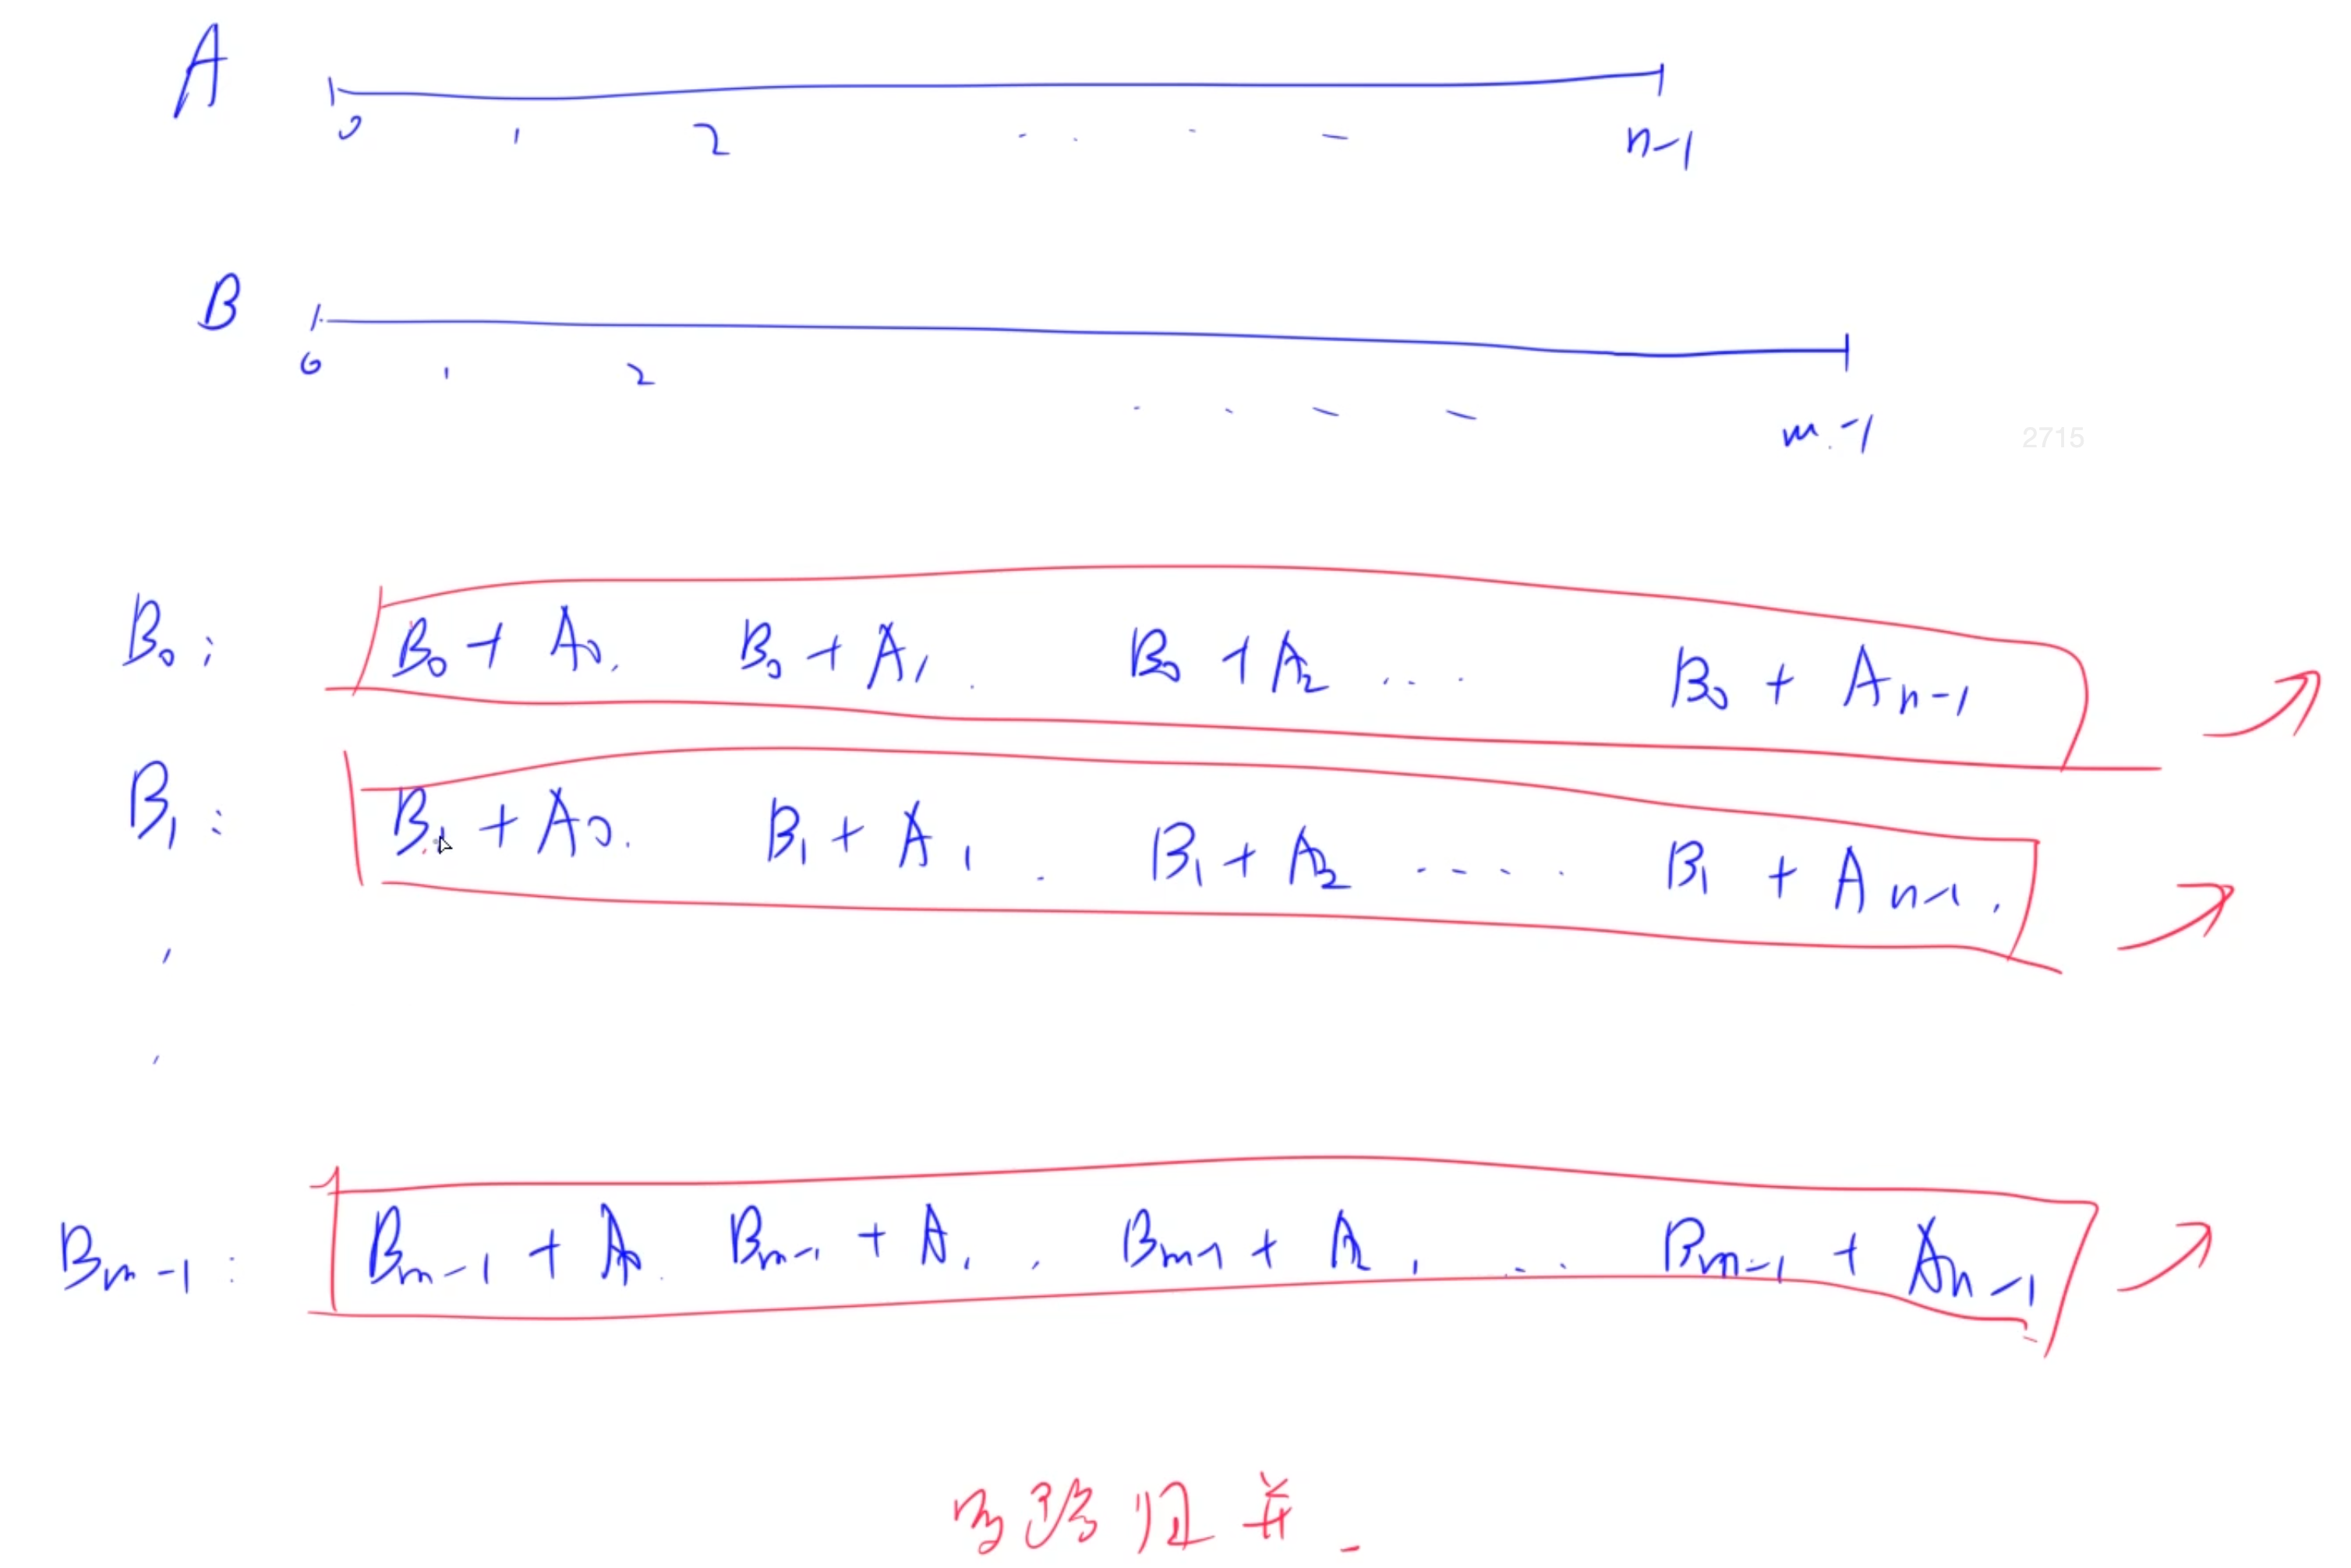 A
0 1 2 . . . - n-1
B
0 1 2 . . - - m-1
2715
B₀: B₀ + A₀. B₀ + A₁. B₀ + A₂ ... B₀ + Aₙ₋₁
B₁: B₁ + A₀. B₁ + A₁. B₁ + A₂ ..... B₁ + Aₙ₋₁.
Bₘ₋₁: Bₘ₋₁ + A₀. Bₘ₋₁ + A₁, Bₘ₋₁ + A₂, ... Bₘ₋₁ + Aₙ₋₁
多路归并